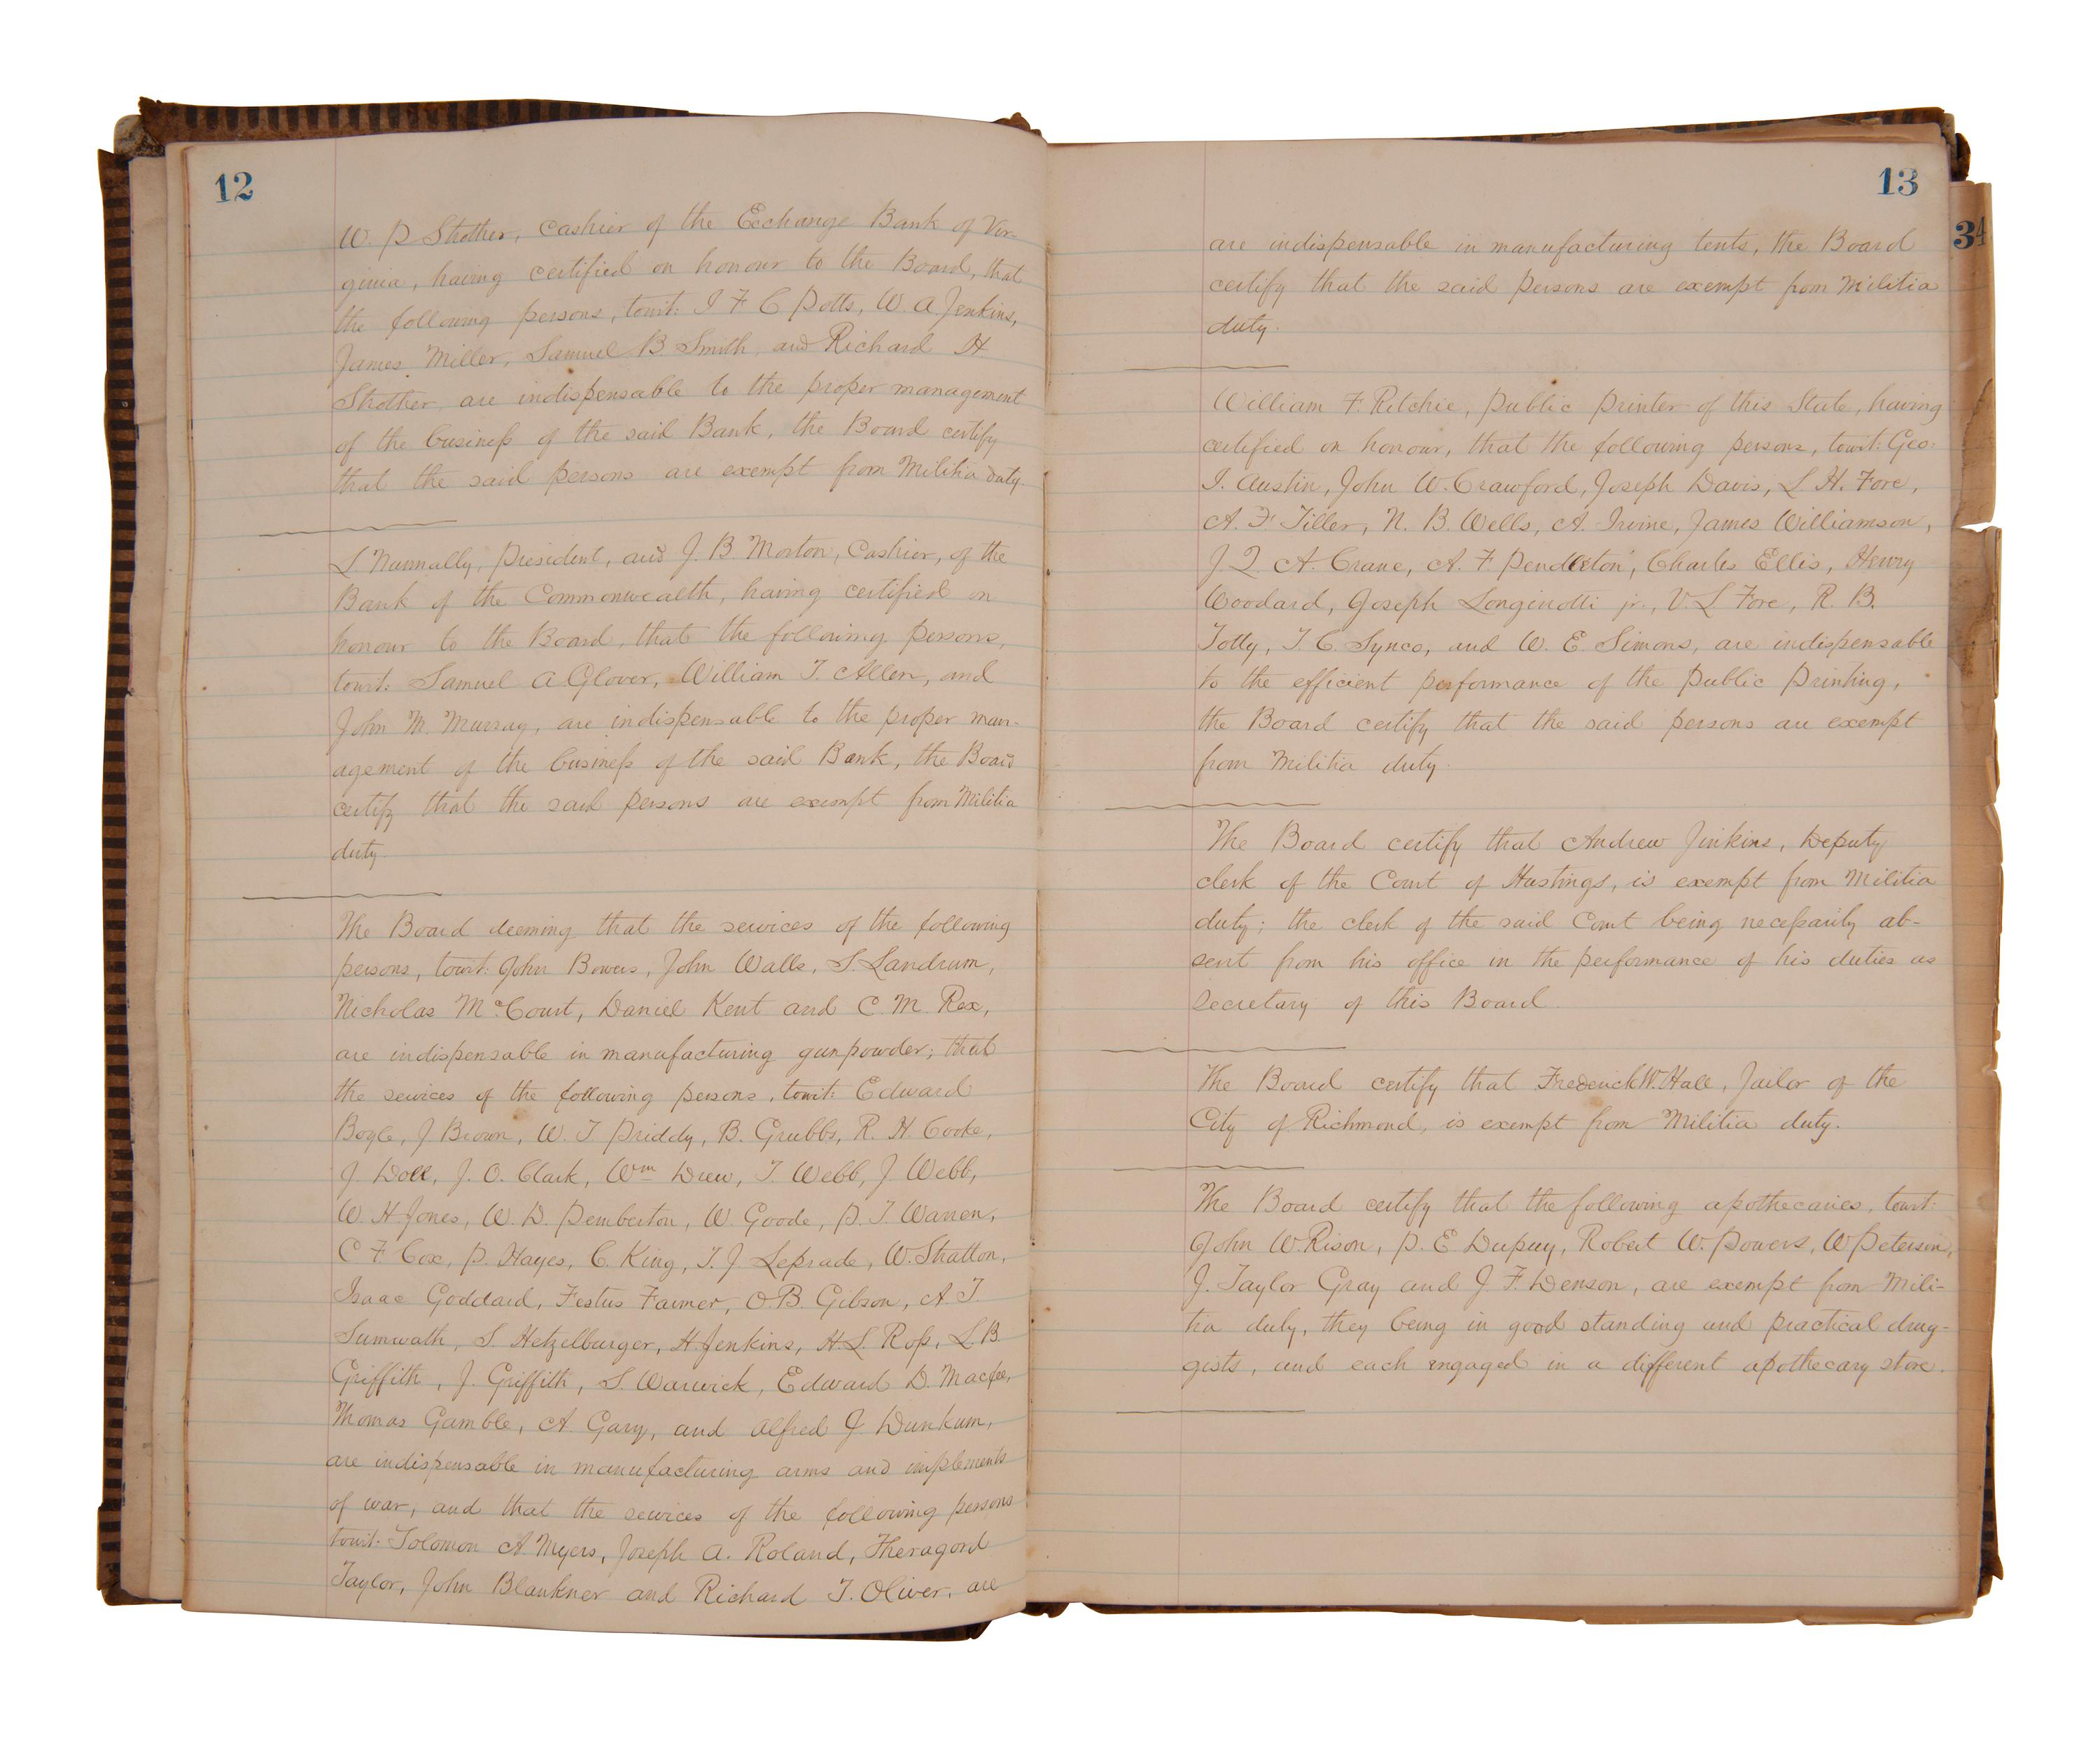 12
W. P Strother, Cashier of the Exchange Bank of Vir-
ginia, having certified on honour to the Board, that
the following persons, towit: I F C Potts, W. A Jenkins,
James Miller, Samuel B Smith and Richard H
Strother are indispensable to the proper management
of the business of the said Bank, the Board certify
that the said persons are exempt from Militia duty.
L Nunnally, President, and J. B Morton, Cashier, of the
Bank of the Commonwealth, having certified on
honour to the Board, that the following persons,
towit: Samuel A Glover, William T. Allen, and
John M. Murray, are indispensable to the proper man-
agement of the business of the said Bank, the Board
certify that the said persons are exempt from Militia
duty.
The Board deeming that the services of the following
persons, towit: John Bowers, John Walls, S. Landrum,
Nicholas McCourt, Daniel Kent and C. M. Rex,
are indispensable in manufacturing gunpowder; that
the services of the following persons, towit: Edward
Bogle, J Brown, W. T Priddy, B. Grubbs, R. H Cooke,
J Doll, J. O. Clark, Wm Drew, T. Webb, J Webb,
W. H Jones, W. D. Pemberton, W. Goode, P. T. Warren,
C F Cox, P. Hayes, C. King, T. J Leprade, W. Stratton,
Isaac Goddard, Festus Farmer, O. B. Gibson, A. T.
Sumwath, S. Hetzelburger, H. Jenkins, H. L. Ross, L. B
Griffith, J. Griffith, S. Warwick, Edward D. Macfee,
Thomas Gamble, A. Gary, and Alfred J Dunkum,
are indispensable in manufacturing arms and implements
of war, and that the services of the following persons
towit: Solomon A. Myers, Joseph A. Roland, Theragord
Taylor, John Blankner and Richard T. Oliver, are
13
34
are indispensable in manufacturing tents, the Board
certify that the said persons are exempt from Militia
duty.
William F. Ritchie, Public Printer of this State, having
certified on honour, that the following persons, towit: Geo.
I. Austin, John W. Crawford, Joseph Davis, L. H. Fore,
A. F Tiller, N. B. Wells, A. Irvine, James Williamson,
J. Q. A. Crane, A. F. Pendleton, Charles Ellis, Henry
Woodard, Joseph Longinotti jr., V. L Fore, R. B.
Totty, T. C. Synco, and W. E. Simons, are indispensable
to the efficient performance of the Public Printing,
the Board certify that the said persons are exempt
from Militia duty.
The Board certify that Andrew Jinkins, Deputy
clerk of the Court of Hustings, is exempt from Militia
duty; the clerk of the said Court being necessarily ab-
sent from his office in the performance of his duties as
Secretary of this Board
The Board certify that Frederick W. Hall, Jailor of the
City of Richmond, is exempt from Militia duty.
The Board certify that the following apothecaries, towit:
John W. Rison, P. E Dupuy, Robert W. Powers, W Peterson,
J. Taylor Gray and J. F. Denson, are exempt from Mili-
tia duty, they being in good standing and practical drug-
gists, and each engaged in a different apothecary store.